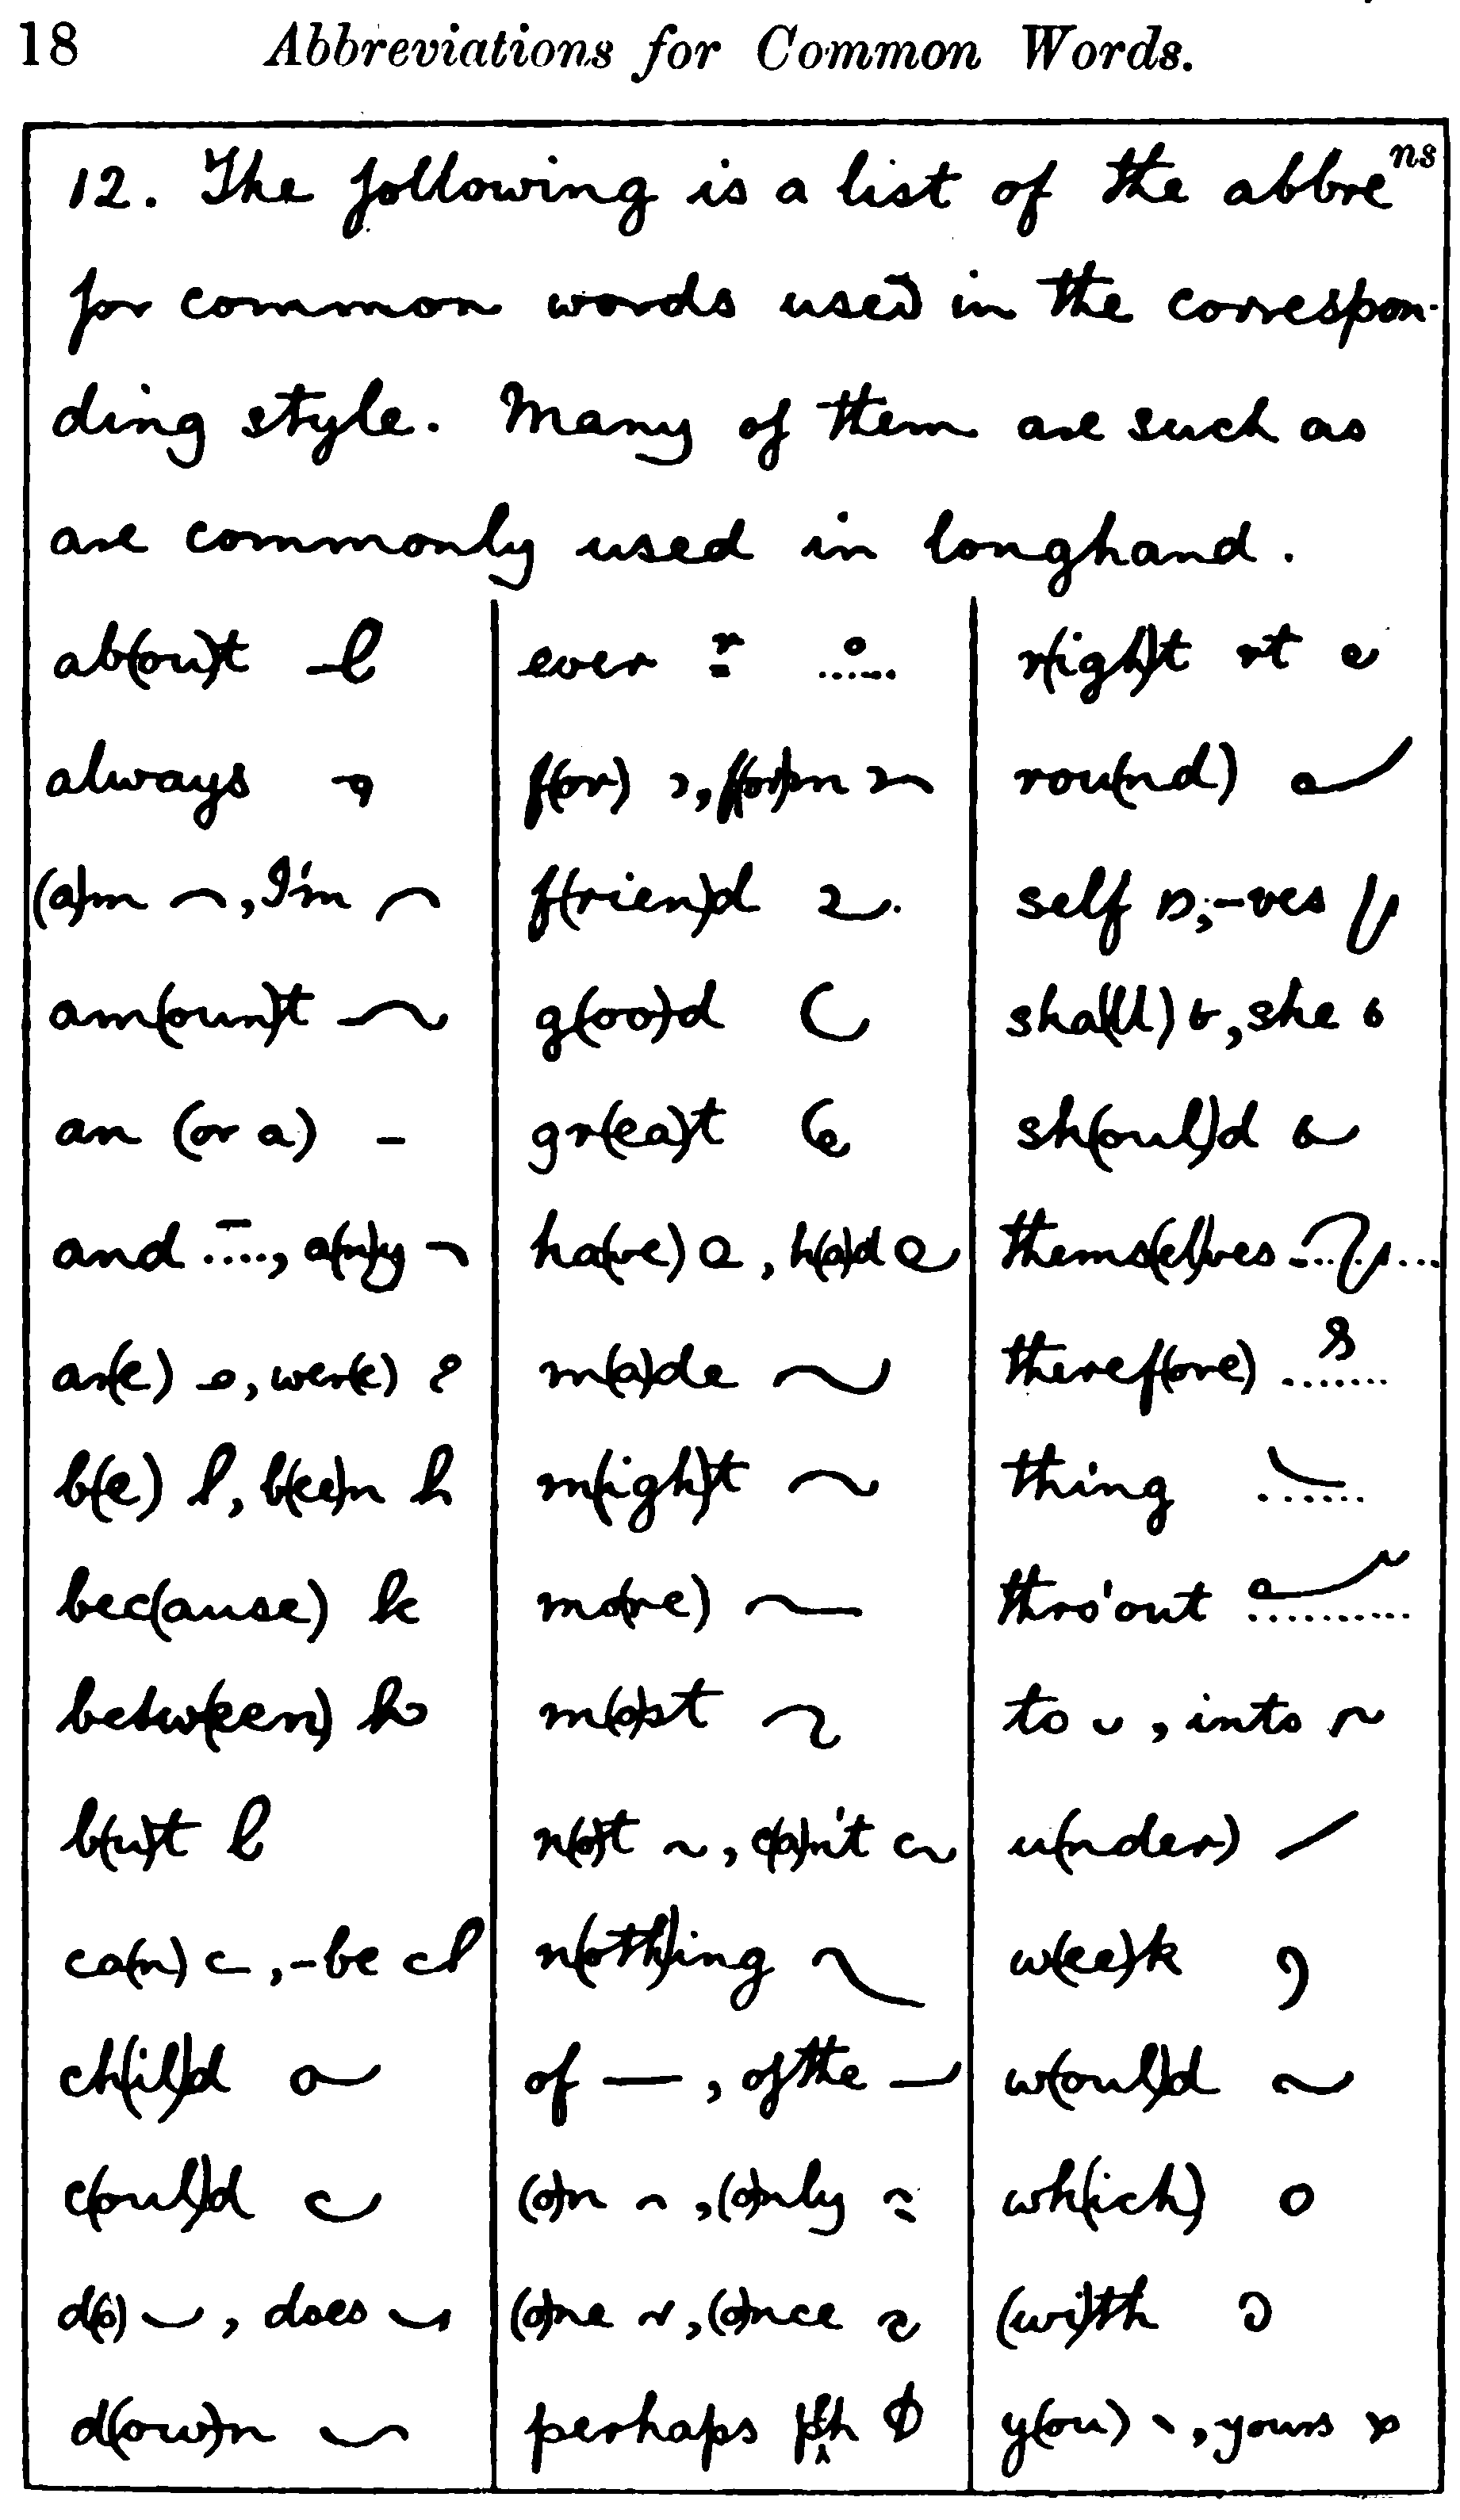 18 Abbreviations for Common Words.
12. The following is a list of the abbre^ns
for common words used in the correspon-
ding style. Many of them are such as
are commonly used in longhand.
ab(ou)t
always
(a)m , I'm
am(oun)t
an (or a)
and , a(n)y
ar(e) , wer(e)
b(e) , b(ee)n
bec(ause)
betw(een)
b(u)t
ca(n) , -be
ch(il)d
c(oul)d
d(o) , does
d(ow)n
ever
f(or) , f(or)m
f(rien)d
g(oo)d
gr(ea)t
ha(ve) , h(a)d
m(a)de
m(igh)t
mo(re)
m(o)st
n(o)t , c(a)n't
n(oth)ing
of , of the
(o)n , (o)nly
(o)ne , (o)nce
perhaps
r(igh)t rt
rou(nd)
self ; -ves
sha(ll) , she
sh(oul)d
thems(el)ves
theref(ore)
thing
thro'out
to , into
u(nder)
w(ee)k
w(oul)d
wh(ich)
(wi)th
y(ou) , yours